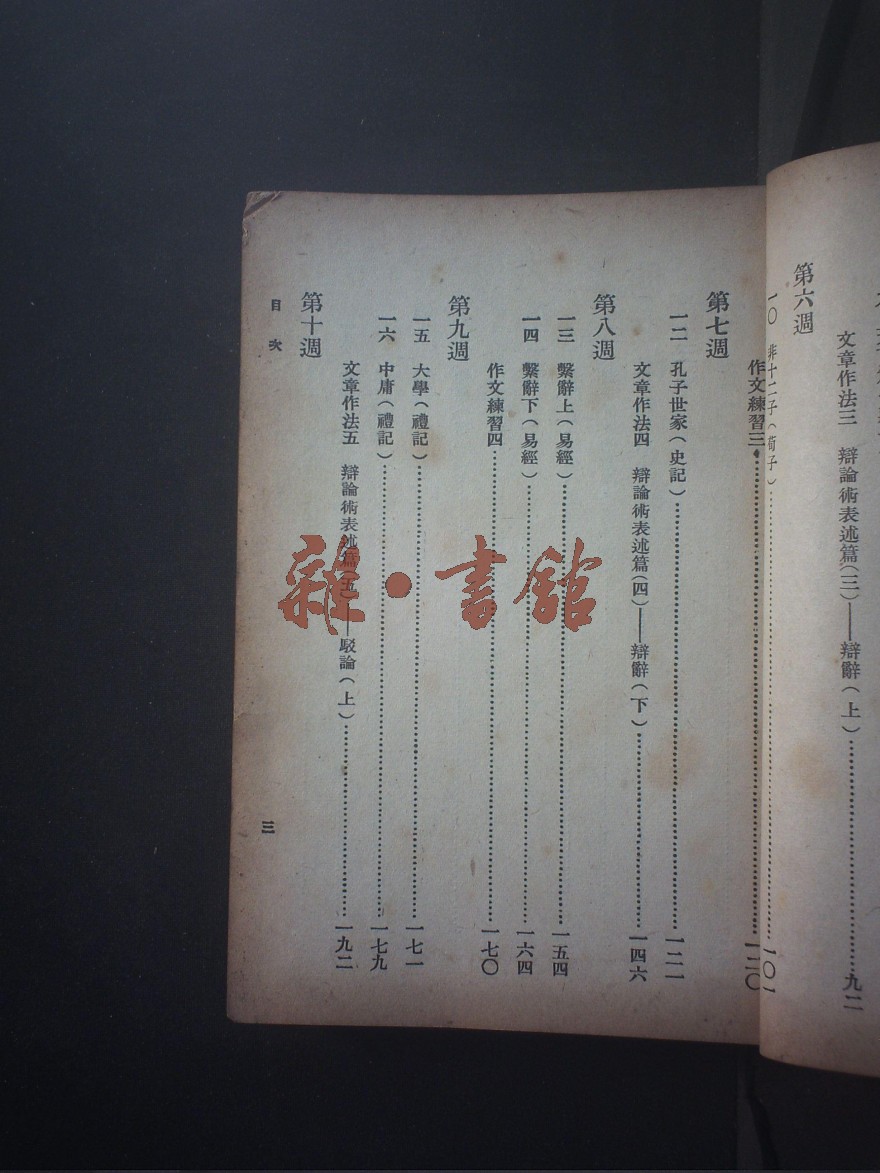 第六週
文章作法三　辯論術表述篇（三）——辯辭（上）……九二
一〇　非十二子（荀子）……一〇一
作文練習三……一二〇
第七週
一二　孔子世家（史記）……一二一
文章作法四　辯論術表述篇（四）——辯辭（下）……一四六
第八週
一三　繫辭上（易經）……一五四
一四　繫辭下（易經）……一六四
作文練習四……一七〇
第九週
一五　大學（禮記）……一七一
一六　中庸（禮記）……一七九
文章作法五　辯論術表述篇（五）——駁論（上）……一九二
第十週
目次
三
雜·書館